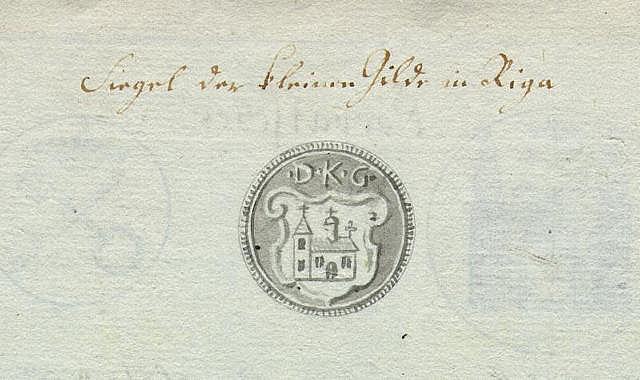 Siegel der kleinen Gilde in Riga
·D·K·G·